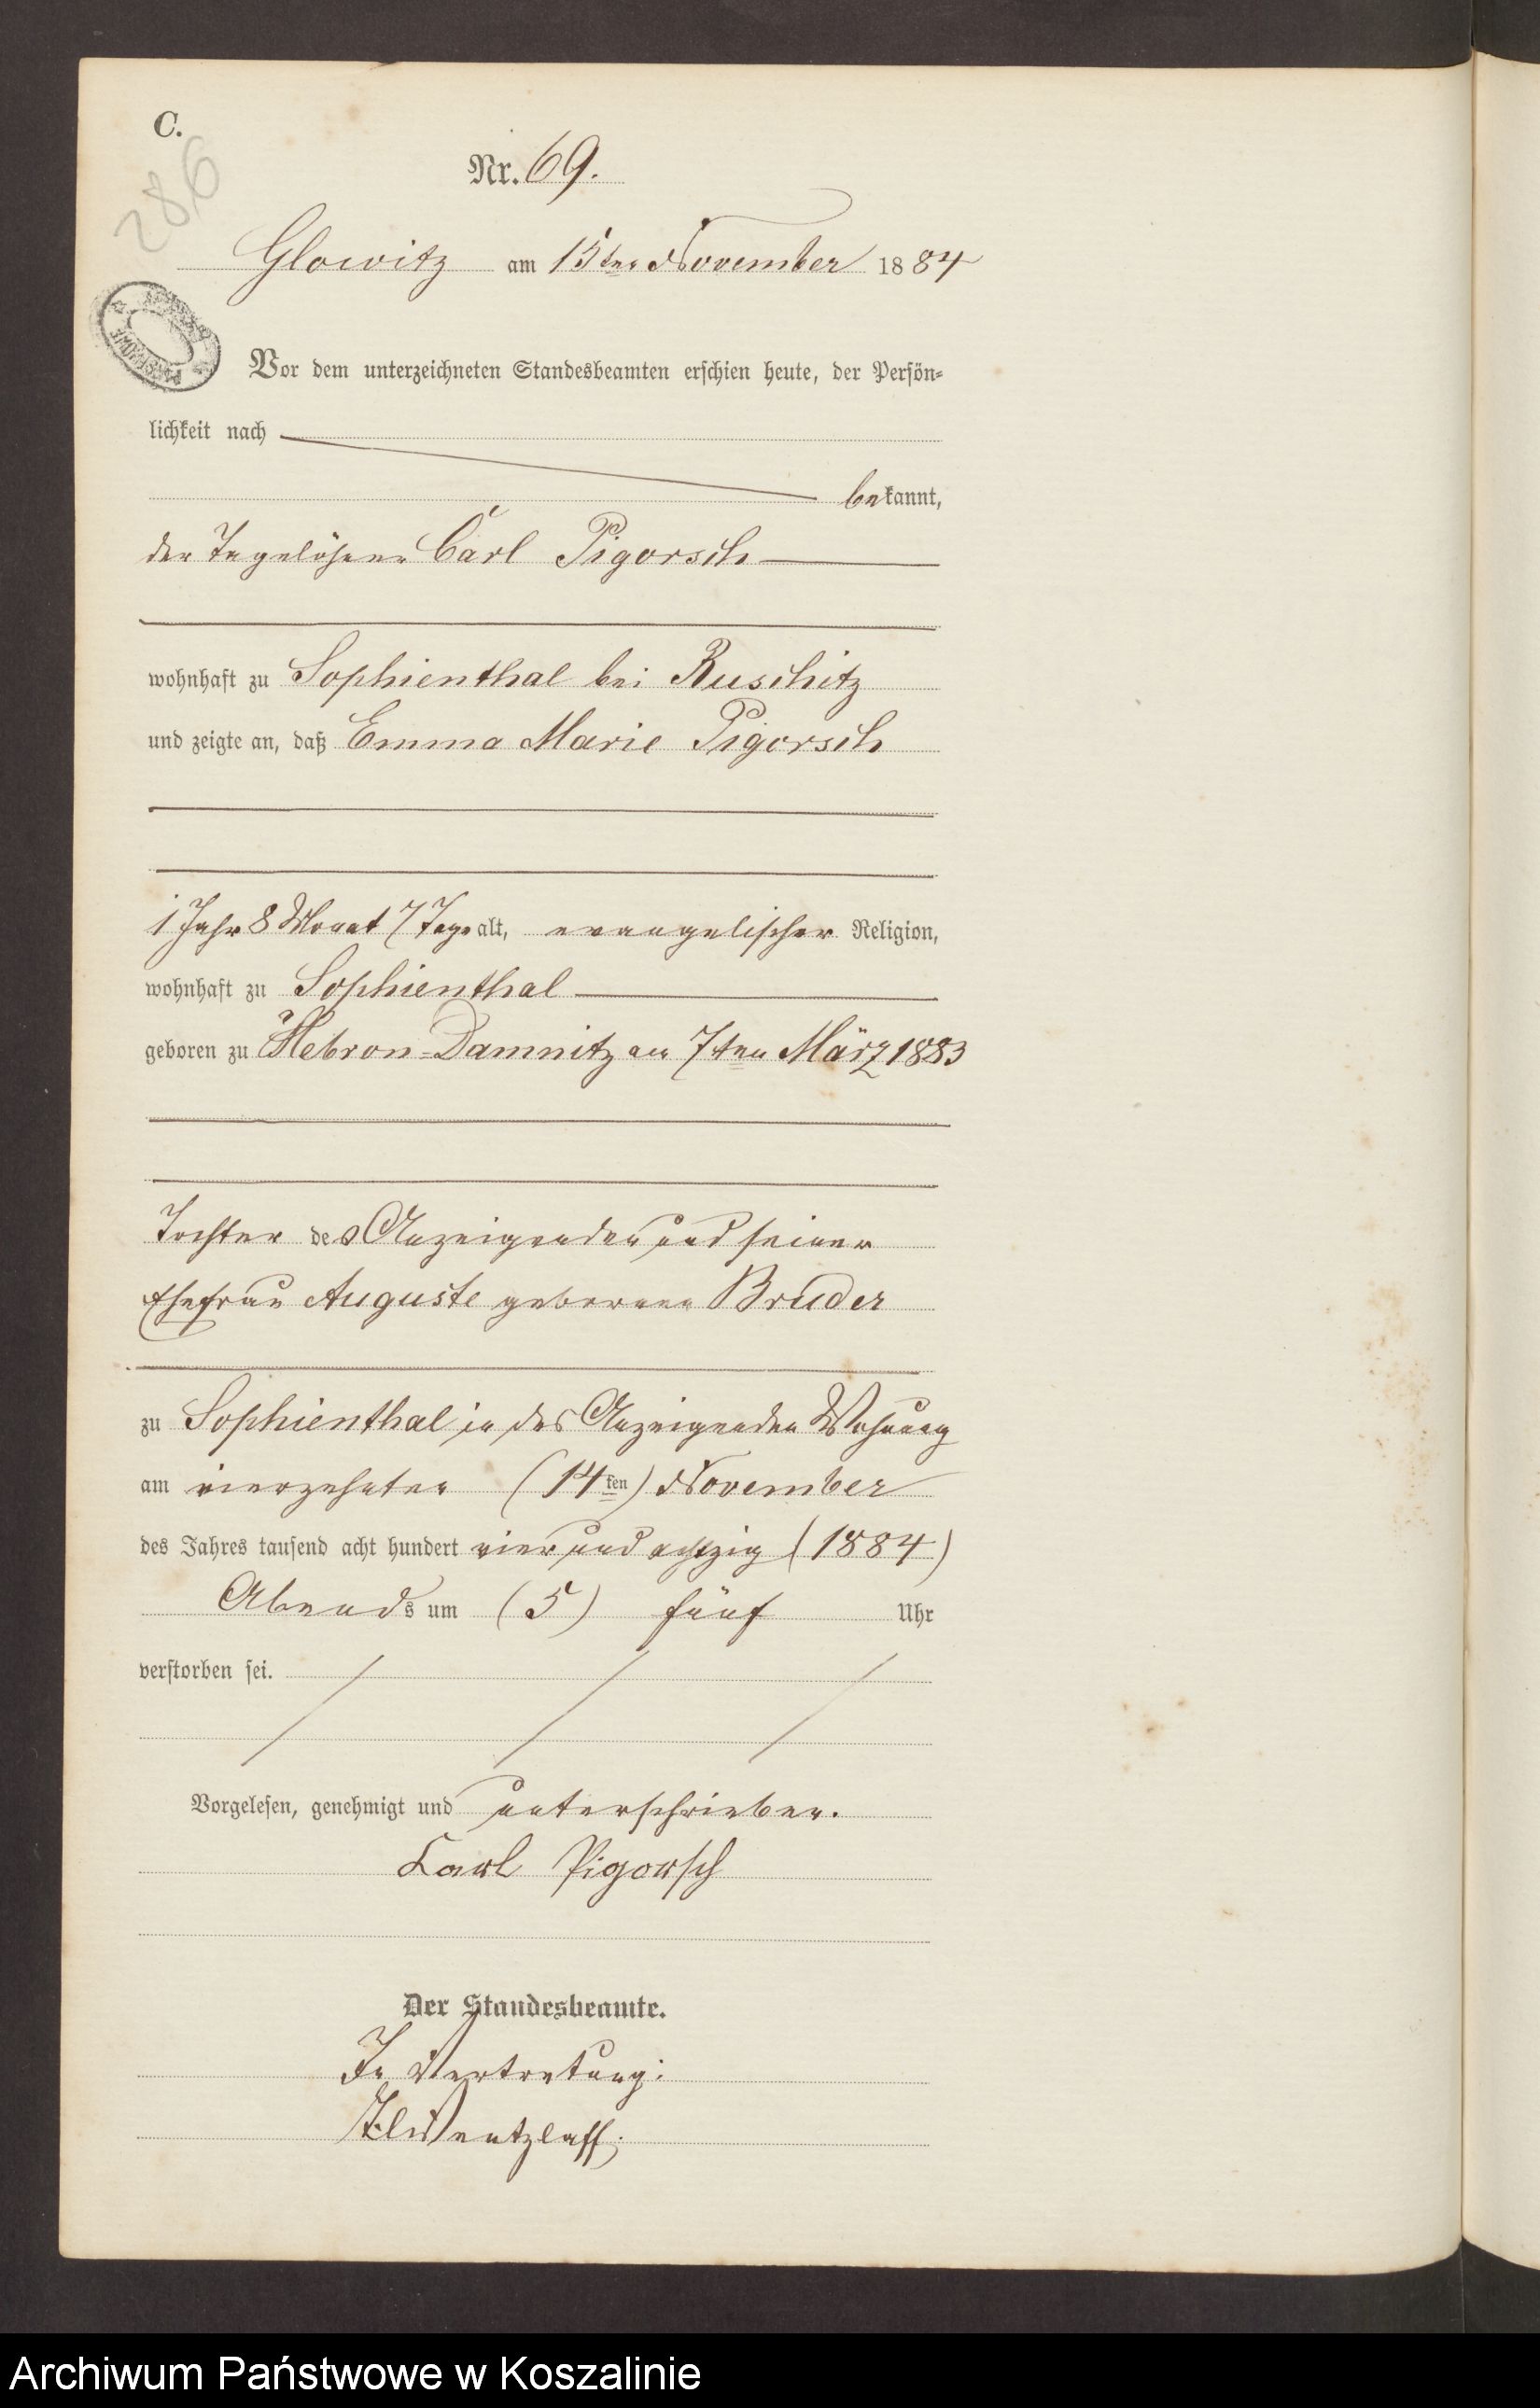 C.
286
Nr. 69.
Glowitz am 15ten November 1884
Vor dem unterzeichneten Standesbeamten erschien heute, der Persön-
lichkeit nach
bekannt,
der Tagelöhner Carl Pigorsch
wohnhaft zu Sophienthal bei Ruschitz
und zeigte an, daß Emma Marie Pigorsch
1 Jahr 8 Monat 7 Tage alt, evangelischer Religion,
wohnhaft zu Sophienthal
geboren zu Hebron-Damnitz am 7ten März 1883
Tochter des Anzeigenden und seiner
Ehefrau Auguste geborene Bruder
zu Sophienthal in des Anzeigenden Wohnung
am vierzehnten (14ten) November
des Jahres tausend acht hundert vier und achtzig (1884)
Abends um (5) fünf Uhr
verstorben sei.
Vorgelesen, genehmigt und unterschrieben.
Carl Pigorsch
Der Standesbeamte.
In Vertretung:
Wentzlaff.
Archiwum Państwowe w Koszalinie